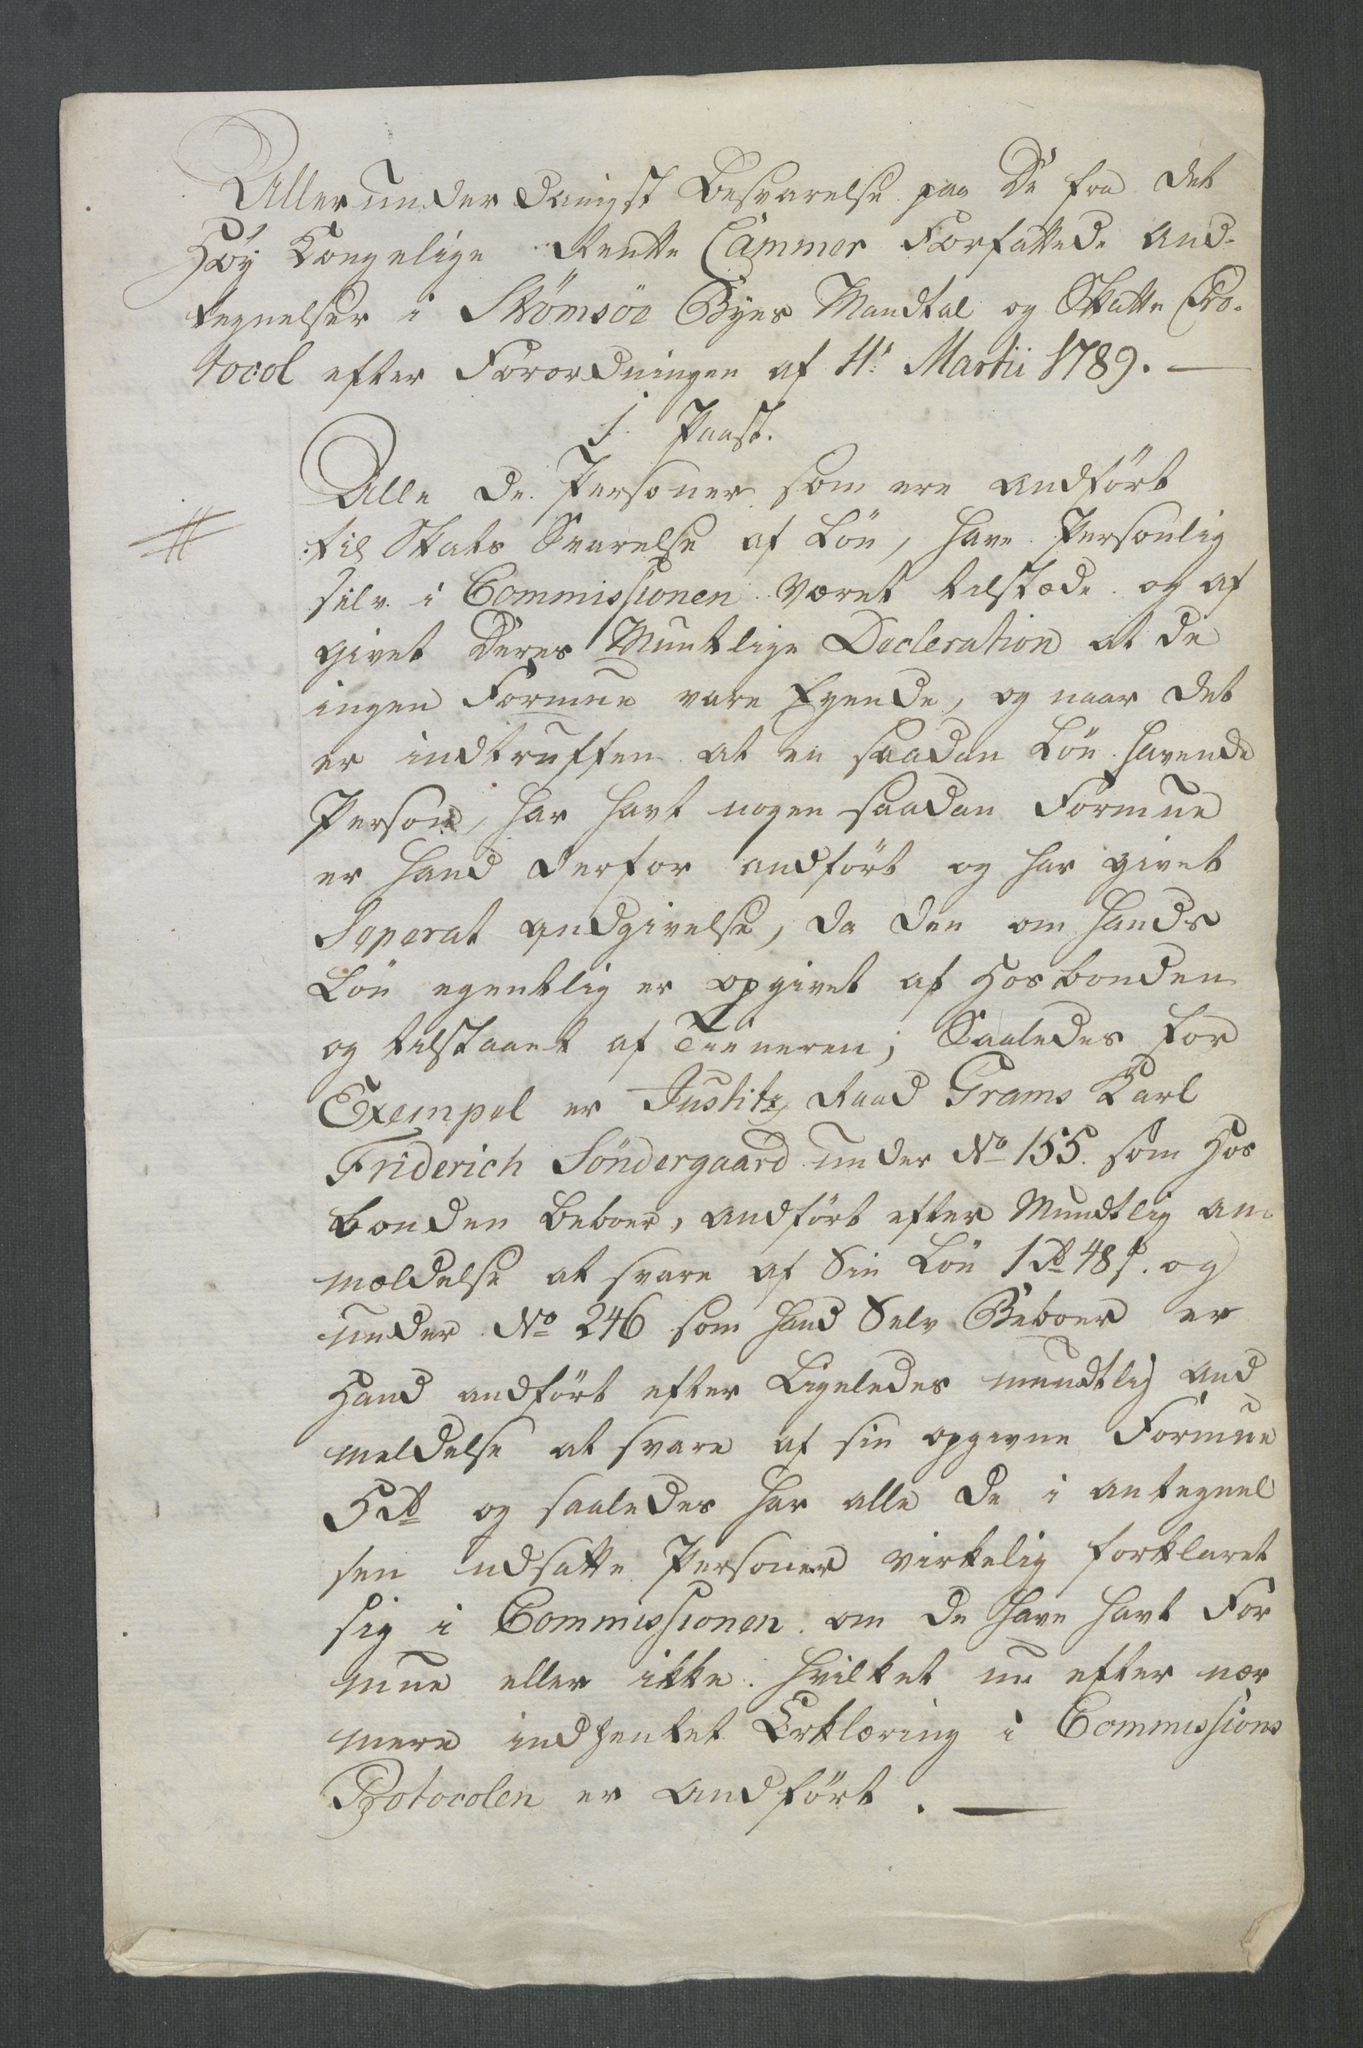 Allerunderdanigst Besvarelse paa De fra Det
Höy Kongelige Rente Cammer Forfattede And-
tegnelser i Strömsöe Byes Mandtal og Skatte Pro-
tocol efter Forordningen af 11te Martii 1789. —
1. Paast.
Alle de Personer som ere andfört
til Skats Svarelse af Lön, have Personlig
selv i Commissionen Været tilstæde og af
givet Deres Muntlige Decleration at de
ingen Formue vare Eyende, og naar det
er indtruffen at en saadan Lön havende
Person, har havt nogen saadan Formue
er hand derfor andfört og har givet
Seperat Andgivelse, da den om hands
Lön egentlig er opgivet af Hosbonden
og tilstaaet af Tieneren; Saaledes for
Exempel er Justitz Raad Grams Karl
Friderich Söndergaard under No 155. som Hos
bonden Beboer, andfört efter Mundtlig an-
mældelse at svare af Sin Lön 1 Rd 48 s. og
under No 246 som hand Selv Beboer er
Hand andfört efter Ligeledes mundtlig And
meldelse at svare af sin opgivne Formue
5 Rd og saaledes har alle de i antegnel
sen udsatte Personer virkelig forklaret
sig i Commissionen om de have havt For
mue eller ikke. hvilket nu efter nær
mere indhentet Erklæring i Commissions
Protocolen er Andfört. —